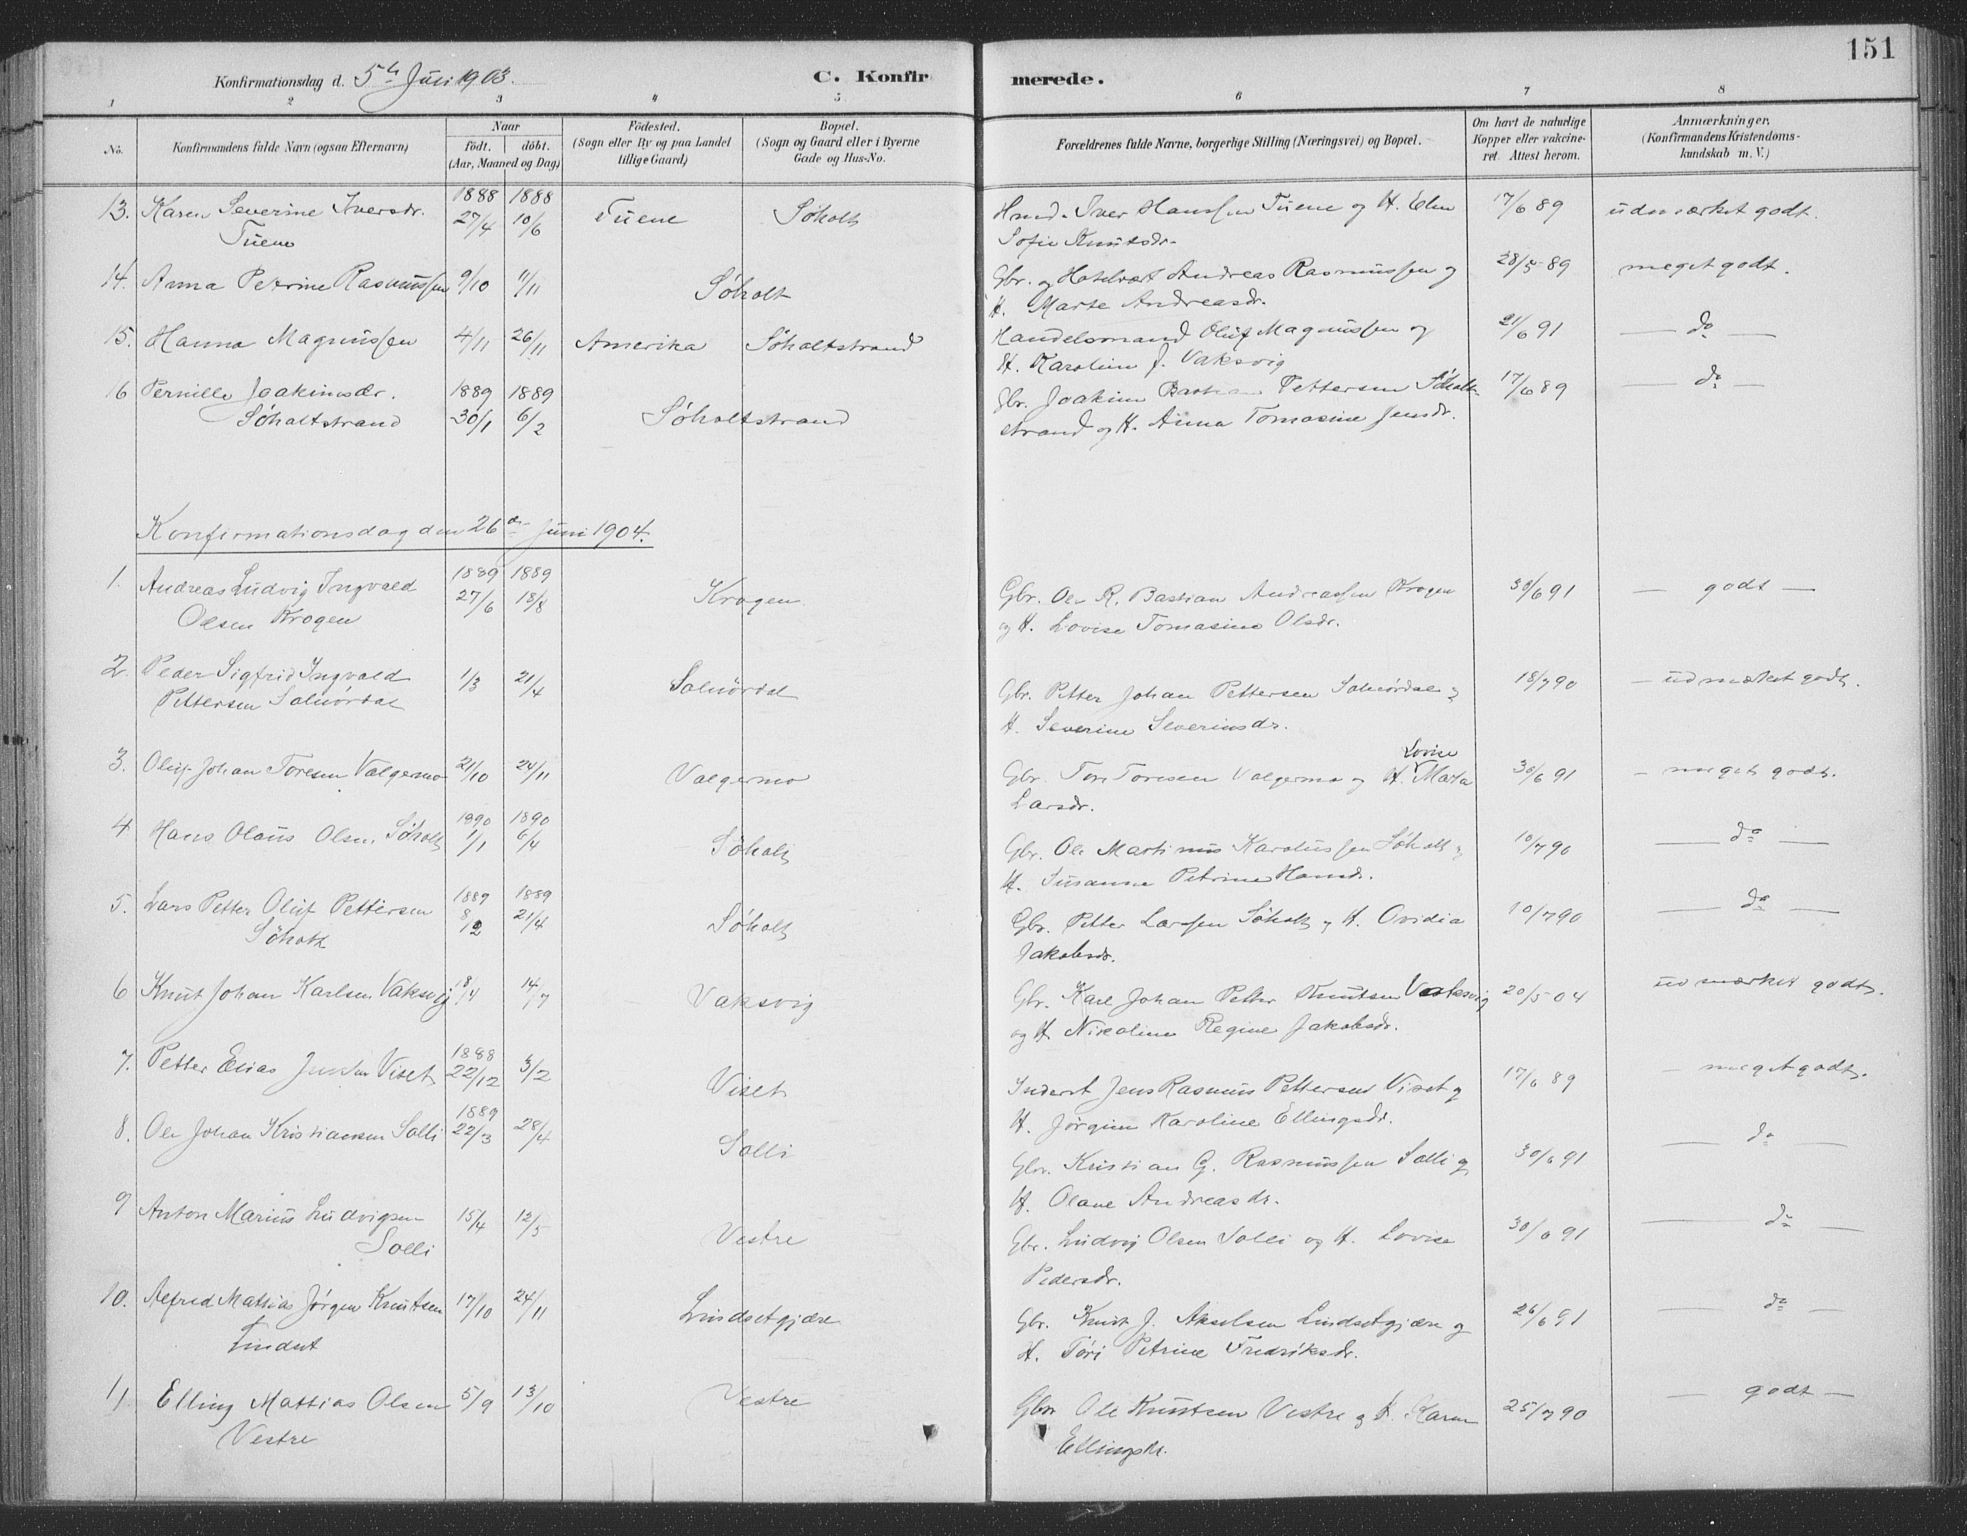 151
Konfirmationsdag d. 5te Juli 1903. C. Konfirmerede.
1 2 3 4 5 6 7 8
No. Konfirmandens fulde Navn (ogsaa Efternavn) Naar födt. döbt. (Aar, Maaned og Dag) Födested. (Sogn eller By og paa Landet tillige Gaard) Bopæl. (Sogn og Gaard eller i Byerne Gade og Hus-No. Forældrenes fulde Navne, borgerlige Stilling (Næringsvei) og Bopæl. Om havt de naturlige Kopper eller vakcineret. Attest herom. Anmærkninger. (Konfirmandens Kristendomskundskab m. V.)
13. Karen Severine Iversdr. 1888 27/4 1888 10/6 Tuene Søholt Hmd. Iver Hanssen Tuene og H. Elen 17/6 89 udmærket godt.
Tuene Sofie Knutsdr.
14. Anna Petrine Rasmussen 9/10 11/11 Søholt Gbr. og Hotelvært Andreas Rasmussen og 28/5 89 meget godt.
H. Marte Andreasdr.
15. Hanna Magnussen 4/11 26/11 Amerika Søholtstrand Handelsmand Oluf Magnussen og 21/6 91 — do —
H. Karoline J. Vaksvig
16 Pernille Joakimsdr. 1889 30/1 1889 6/2 Søholtstrand Gbr. Joakim Bastian Pettersen Søholt- 17/6 89 — do —
Søholtstrand strand og H. Anna Tomasine Jensdr.
Konfirmationsdag den 26de Juni 1904.
1. Andreas Ludvig Ingvald 1889 27/6 1889 18/8 Krogen Gbr. Ole R. Bastian Andreassen Krogen 30/6 91 — godt —
Olsen Krogen og H. Lovise Tomasine Olsdr.
2 Peder Sigfrid Ingvald 1/3 21/4 Solnørdal Gbr. Petter Johan Pettersen Solnørdal og 18/7 90 — udmærket godt.
Pettersen Solnørdal H. Severine Severinsdr.
3. Oluf Johan Toresen Valgermo 21/10 24/11 Valgermo Gbr. Tore Toresen Valgermo og H. Lovise Marta 30/6 91 — meget godt.
Larsdr.
4 Hans Olaus Olsen Søholt 1890 1/1 1890 6/4 Søholt Gbr. Ole Martinus Karolussen Søholt og 10/7 90 — do —
H. Susanne Petrine Hansdr.
5. Lars Petter Oluf Pettersen 1889 8/2 1889 21/4 Søholt Gbr. Petter Larssen Søholt og H. Ovidia 10/7 90 — do —
Søholt Jakobsdr.
6 Knut Johan Karlsen Vaksvig 18/4 14/7 Vaksvig Gbr. Karl Johan Petter Knutsen Vaksvig 20/5 04 udmærket godt.
og H. Nikoline Regine Jakobsdr.
7. Petter Elias Jensen Viset 1888 22/12 3/2 Viset Inderst Jens Rasmus Pettersen Viset og 17/6 89 — meget godt.
H. Jørgine Karoline Ellingsdr.
8. Ole Johan Kristiansen Solli 1889 22/3 28/4 Solli Gbr. Kristian G. Rasmussen Solli og 30/6 91 — do —
H. Olave Andreasdr.
9 Anton Marius Ludvigsen 15/4 12/5 Vestre Gbr. Ludvig Olsen Solli og H. Lovise 30/6 91 — do —
Solli Pedersdr.
10. Alfred Mattias Jørgen Knutsen 17/10 24/11 Lindsetgjære Gbr. Knut J. Akselsen Lindsetgjære og 26/6 91 — do —
Lindset H. Tøri Petrine Fredriksdr.
11 Elling Mattias Olsen 5/9 13/10 Vestre Gbr. Ole Knutsen Vestre og H. Karen 25/7 90 — godt —
Vestre Ellingsdr.